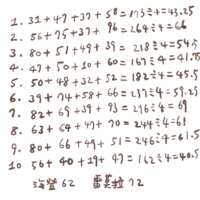 1. 31+47+37+58=173÷4=43.25
2. 56+75+37+96=264÷4=66
3. 80+51+49+39=218÷4=54.5
4. 47+50+10+60=167÷4=41.75
5. 50+48+32+52=182÷4=45.5
6. 39+74+58+66=237÷4=59.25
7. 82+69+39+93=276÷4=69
8. 63+64+47+70=244÷4=61
9. 80+66+49+51=246÷4=61.5
10. 56+40+19+47=162÷4=40.5
海螢 62 雷莫拉 72